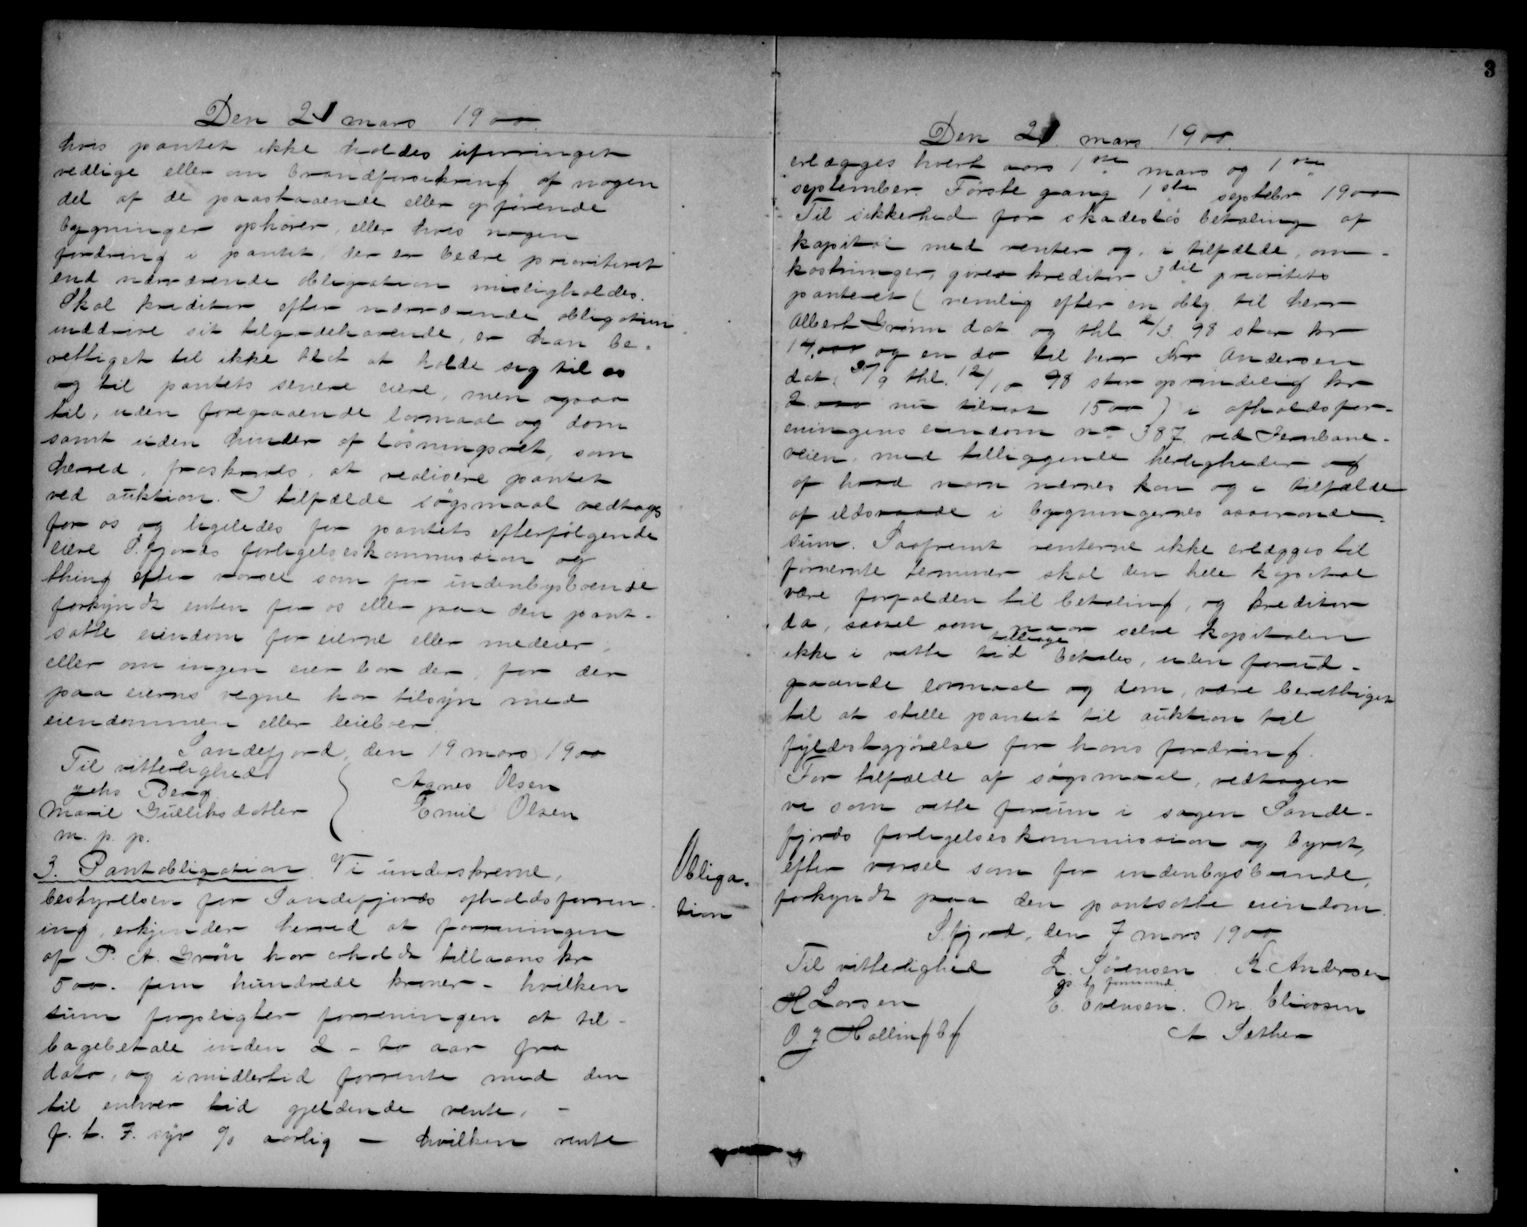 Den 21 mars 1900.
hvis pantet ikke holdes uforringet
vedlige eller om brandforsikring af nogen
del af de paastaaende eller opførende
bygninger ophører, eller hvis nogen
fordring i pantet, der er bedre prioriteret
end nærværende obligation misligholdes.
Skal kreditor efter nærværende obligation
inddrive sit tilgodehavende, er han be-
rettiget til ikke blot at holde sig til os
og til pantets senere eiere, men ogsaa
til, uden foregaaende lovmaal og dom
samt uden hinder af løsningsret, som
herved, fraskrives, at realisere pantet
ved auktion. I tilfælde søgsmaal vedtages
for os og ligeledes for pantets efterfølgende
eiere S.fjords forligelseskommission og
thing efter varsel som for indenbysboende
forkyndt enten for os eller paa den pant-
satte eiendom for eierne eller medeier,
eller om ingen eier bor der, for den
paa eierns vegne har tilsyn med
eiendommen eller leieboer.
Sandefjord, den 19 mars 1900
Til vitterlighed
Agnes Olsen
Johs Berg
Emil Olsen
Marie Gulliksdatter
m. p. p.
3. Pantobligation. Vi underskrevne,
bestyrelsen for Sandefjords afholdsforen-
ing, erkjender herved at foreningen
af P. A. Grøn har erholdt tillaans kr
500. fem hundrede kroner - hvilken
sum forpligter foreningen at til-
bagebetale inden 2 - to aar fra
dato, og imidlertid forrente med den
til enhver tid gjeldende rente, -
f. t. 7. syv % aarlig - hvilken rente
Obliga-
tion
3
Den 21 mars 1900.
erlægges hvert aars 1ste mars og 1ste
september Første gang 1ste septebr 1900
Til sikkerhed for skadesløs betaling af
kapital med renter og, i tilfælde, om-
kostninger, gives kreditor 3die prioritets
panteret (nemlig efter en oblg til herr
Albert Grønn dat og thl 2/3 98 stor kr
14,000 og en do til herr Kr Andersen
dat. 27/9 thl. 12/10 98 stor oprindelig kr
2.000 nu tilrest 1500) i afholdsfor-
eningens eiendom no 387 ved Jernbane-
veien, med tilliggende herligheder og
af hvad navn nævnes kan og i tilfælde
af ildsvaade i bygningernes assurance-
sum. Saafremt renterne ikke erlægges til
førnevnte terminer skal den hele kapital
være forfalden til betaling, og kreditor
da, saavel som naar selve kapitalen
tillige
ikke i rette tid betales, uden forud-
gaaende lovmaal og dom, være berettiget
til at stille pantet til auktion til
fyldestgjørelse for hans fordring.
For tilfælde af søgsmaal, vedtager
vi som rette forum i sagen Sande-
fjords forligelseskommission og byret,
efter varsel som for indenbysboende,
forkyndt paa den pantsatte eiendom.
S.fjord, den 7 mars 1900
Til vitterlighed L. Sørensen K Andersen
formand
H Larsen E. Evensen. M Eliassen
O J Hallingby A Sether